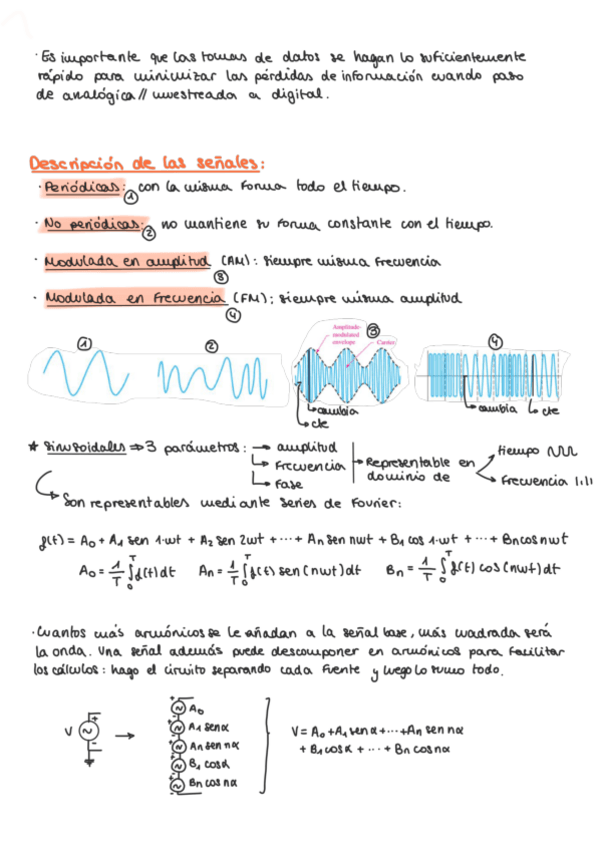 · Es importante que las tomas de datos se hagan lo suficientemente
rápido para minimizar las pérdidas de información cuando paso
de analógica // muestreada a digital.
Descripción de las señales:
· Periódicas: con la misma forma todo el tiempo.
①
· No periódicas: no mantiene su forma constante con el tiempo.
②
· Modulada en amplitud (AM): siempre misma frecuencia
③
· Modulada en frecuencia (FM): siempre misma amplitud
④
① ② ③ ④
Amplitude-
modulated
envelope
Carrier
cambia
cte
cambia cte
★ Sinusoidales ⇒ 3 parámetros: → amplitud
↳ Frecuencia
↳ Fase
Representable en
dominio de
tiempo
Frecuencia
Son representables mediante series de Fourier:
f(t) = A₀ + A₁ sen 1·wt + A₂ sen 2wt + ··· + An sen nwt + B₁ cos 1·wt + ··· + Bn cos nwt
A₀ = 1/T ∫₀ᵀ f(t) dt An = 1/T ∫₀ᵀ f(t) sen (nwt) dt Bn = 1/T ∫₀ᵀ f(t) cos (nwt) dt
· Cuantos más armónicos se le añadan a la señal base, más cuadrada será
la onda. Una señal además puede descomponer en armónicos para facilitar
los cálculos: hago el circuito separando cada fuente y luego lo sumo todo.
V
+
→
A₀
A₁ sen α
An sen nα
B₁ cos α
Bn cos nα
V = A₀ + A₁ sen α + ··· + An sen nα
+ B₁ cos α + ··· + Bn cos nα